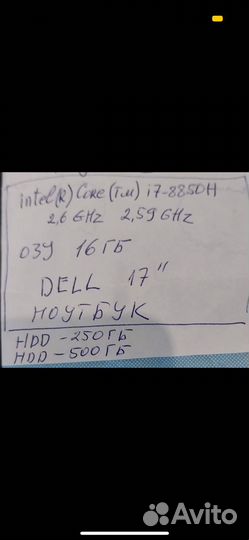 intel(R) Core(TM) i7-8850H
2,6 GHz 2,59 GHz
ОЗУ 16 ГБ
DELL 17"
НОУТБУК
HDD - 250 ГБ
HDD - 500 ГБ
Avito